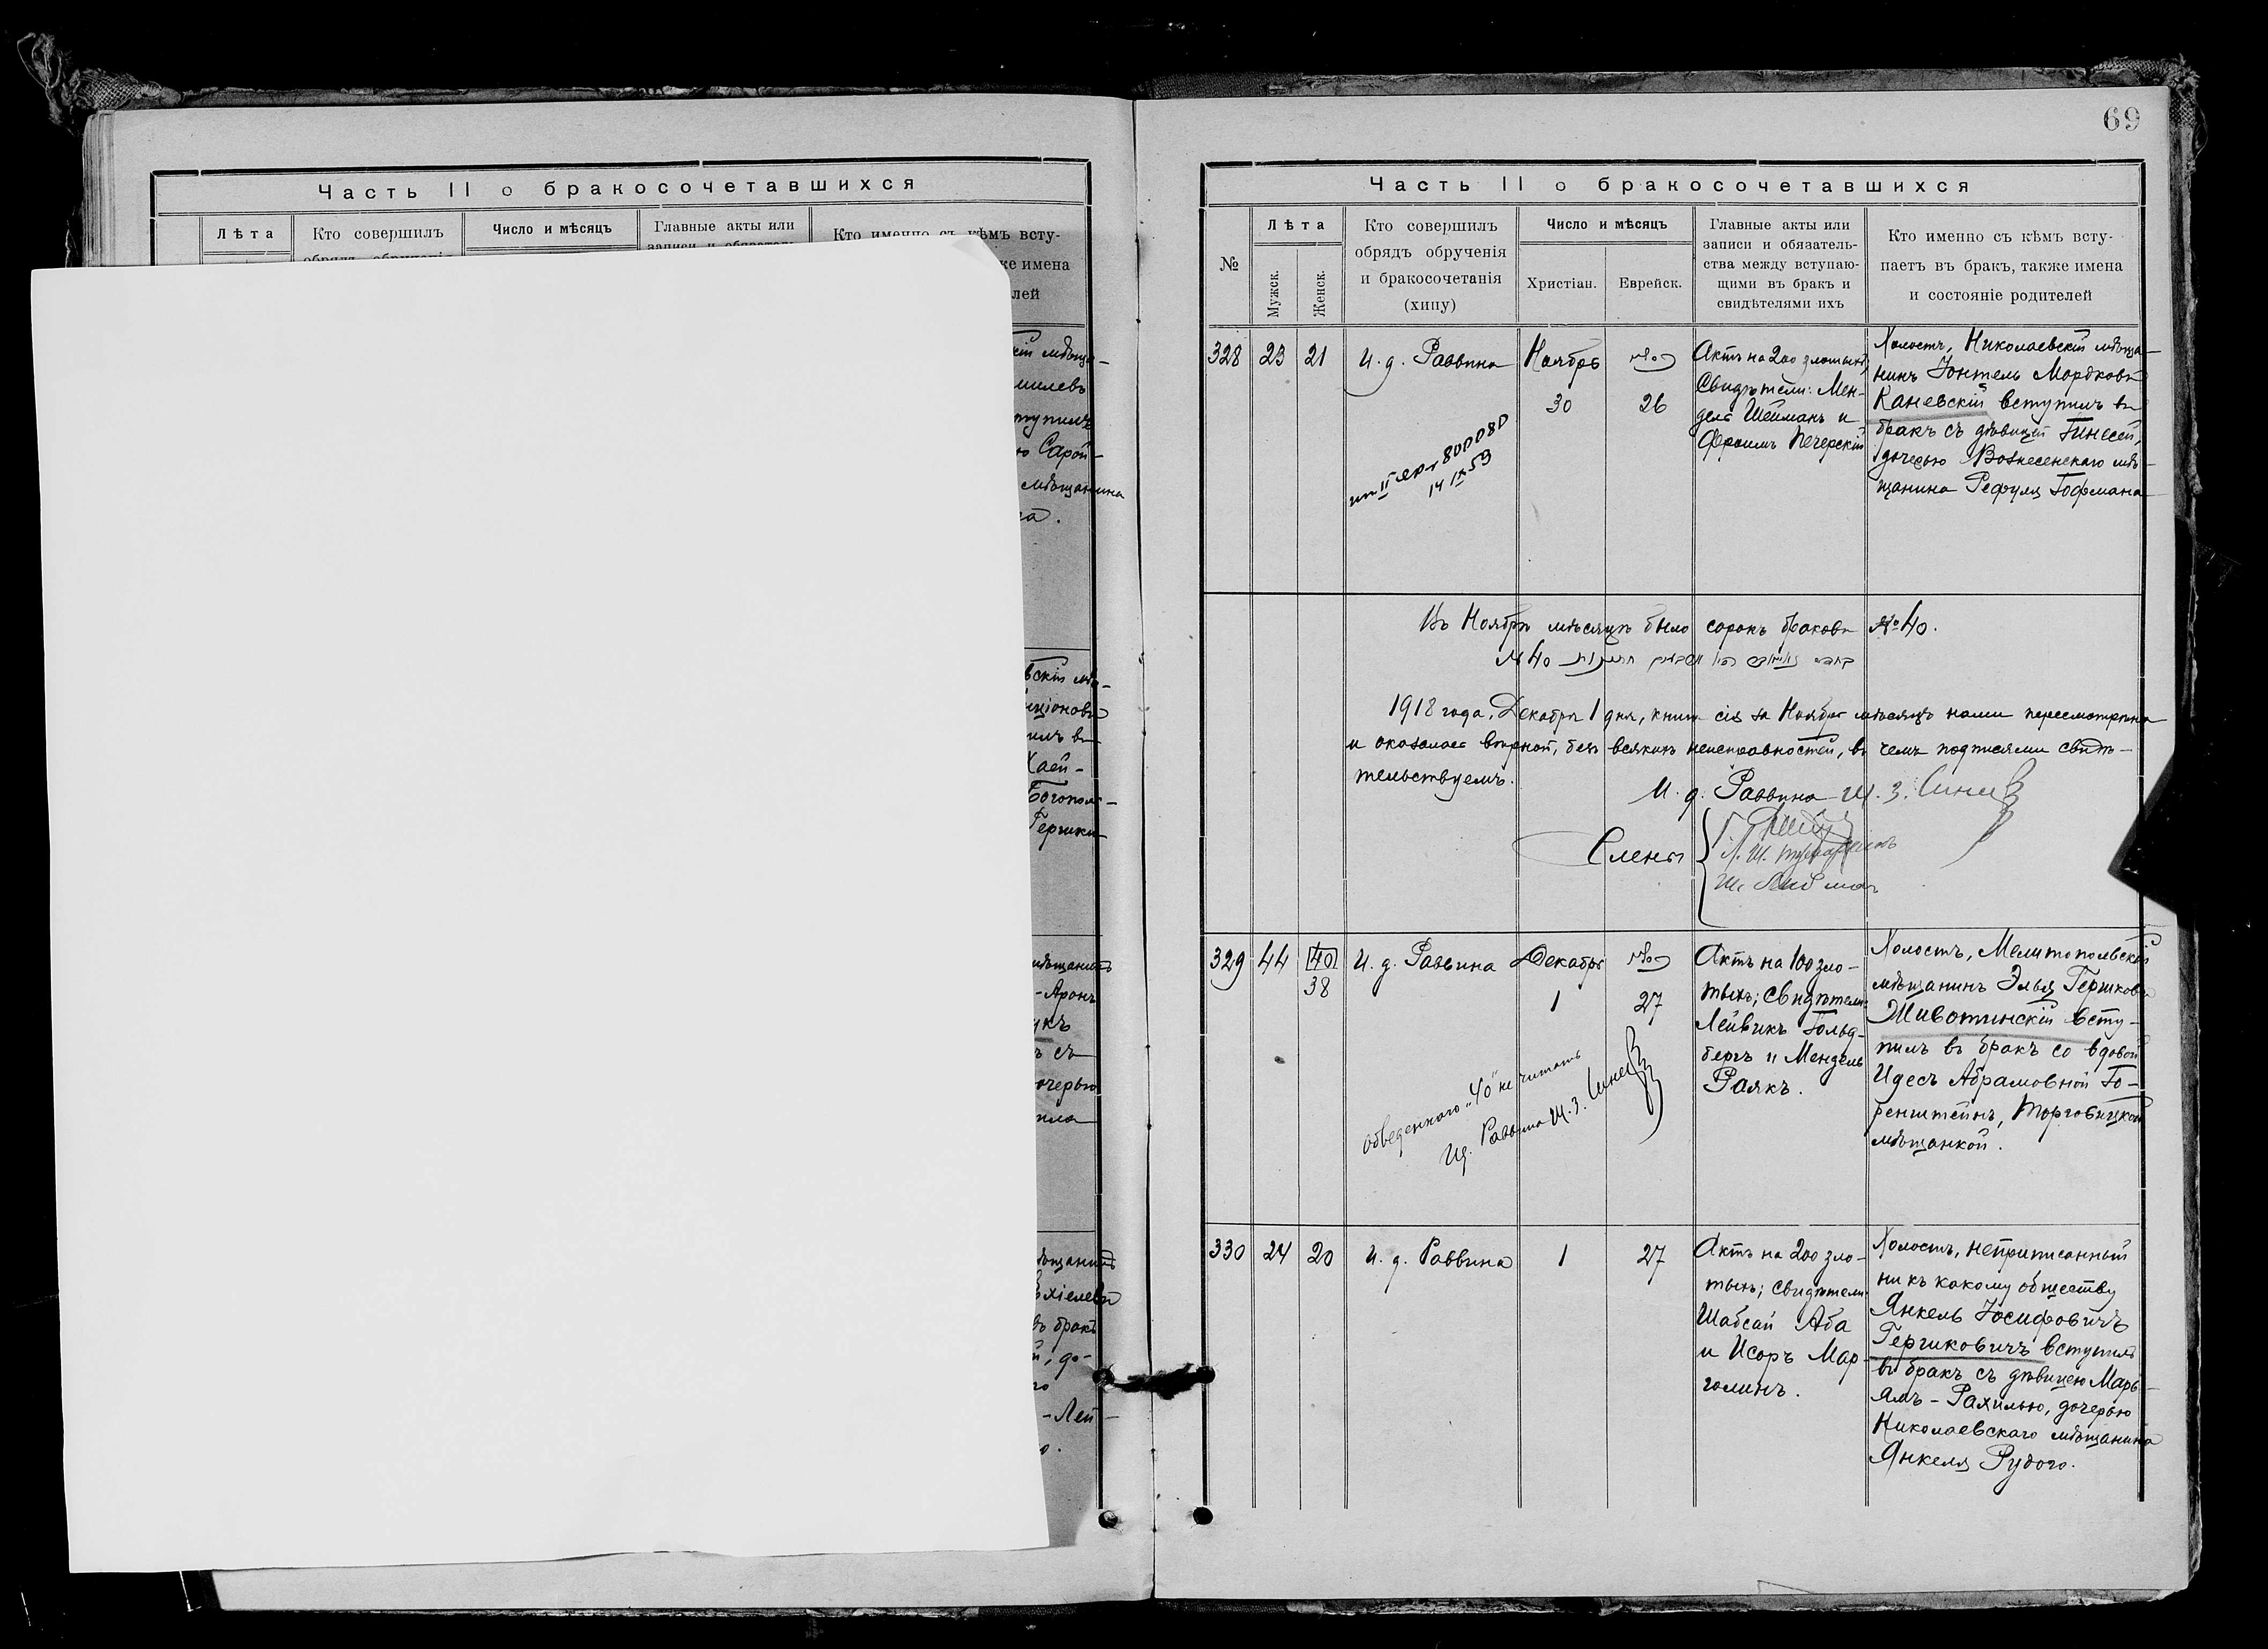 Часть II о бракосочетавшихся
Лѣта
Кто совершилъ
Число и мѣсяцъ
Главные акты или
Кто именно съ кѣмъ всту-
же имена
лей
ступилъ
ю Сарой-
мѣщанина
вскій мѣ-
Хаей-
Богопол-
Гершки
мѣщанинъ
-Аронъ
ъ съ
очерью
ъ бракъ
й, до-
-Лей-
69
Часть II о бракосочетавшихся
№
Лѣта
Мужск.
Женск.
Кто совершилъ
обрядъ обрученія
и бракосочетанія
(хипу)
Число и мѣсяцъ
Христіан.
Еврейск.
Главные акты или
записи и обязатель-
ства между вступаю-
щими въ бракъ и
свидѣтелями ихъ
Кто именно съ кѣмъ всту-
паетъ въ бракъ, также имена
и состояніе родителей
328
23
21
И. д. Раввина
Ноябрь
30
26
Актъ на 200 злотыхъ,
Свидѣтели: Мен-
дель Шейманъ и
Фроимъ Печерскій
Холостъ, Николаевскій мѣща-
нинъ Іонтель Мордковъ
Каневскій вступилъ въ
бракъ съ дѣвицей Гинесей,
дочерью Вознесенскаго мѣ-
щанина Рефуля Гофмана
14 IX 59
Въ Ноябрѣ мѣсяцѣ было сорокъ браковъ № 40.
№ 40
1918 года, Декабря 1 дня, книга сія за Ноябрь мѣсяцъ нами пересмотрѣна
и оказалась вѣрной, безъ всякихъ неисправностей, въ чемъ подписями свидѣ-
тельствуемъ.
И. д. Раввина Ш. З.
Члены
329
44
40
38
И. д. Раввина
Декабрь
1
27
Актъ на 100 зло-
тыхъ; Свидѣтели:
Лейвикъ Гольд-
бергъ и Мендель
Раякъ.
Холостъ, Мелитопольскій
мѣщанинъ Элья Гершковъ
Животинскій всту-
пилъ въ бракъ со вдовой
Идесъ Абрамовной Го-
ренштейнъ, Торговицкой
мѣщанкой.
Обведеннаго „40" не читать
И. д. Раввина Ш. З.
330
24
20
И. д. Раввина
1
27
Актъ на 200 зло-
тыхъ; Свидѣтели:
Шабсай Аба
и Исоръ Мар-
голинъ.
Холостъ, неприписанный
ни къ какому обществу
Янкель Іосифовичъ
Гершковичъ вступилъ
въ бракъ съ дѣвицею Марь-
ямъ-Рахилью, дочерью
Николаевскаго мѣщанина
Янкеля Рудого.